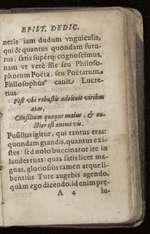 EPIST. DEDIC.
neris iam dudum vnguiculis,
qui & quantus quondam futu-
rus, satis superq; cognoscimus,
nam vt verè ille seu Philoso-
phorum Poëta, seu Poëtarum
Philosophus canit, Lucre-
tius
Post vbi robustis adoleuit viribus
ætas,
Consilium quoque maius, & au-
ctior est animi vis.
Possumus igitur, qui tantus eras:
quondam grandis, quantus exi-
stes: sed nolo buccinator hic in
laudes tuas: quia satis licet ma-
gnas, gloriosius tamen atque li-
bentius Tute augebis agendo,
quàm ego dicendo. id enim pro-
A 4